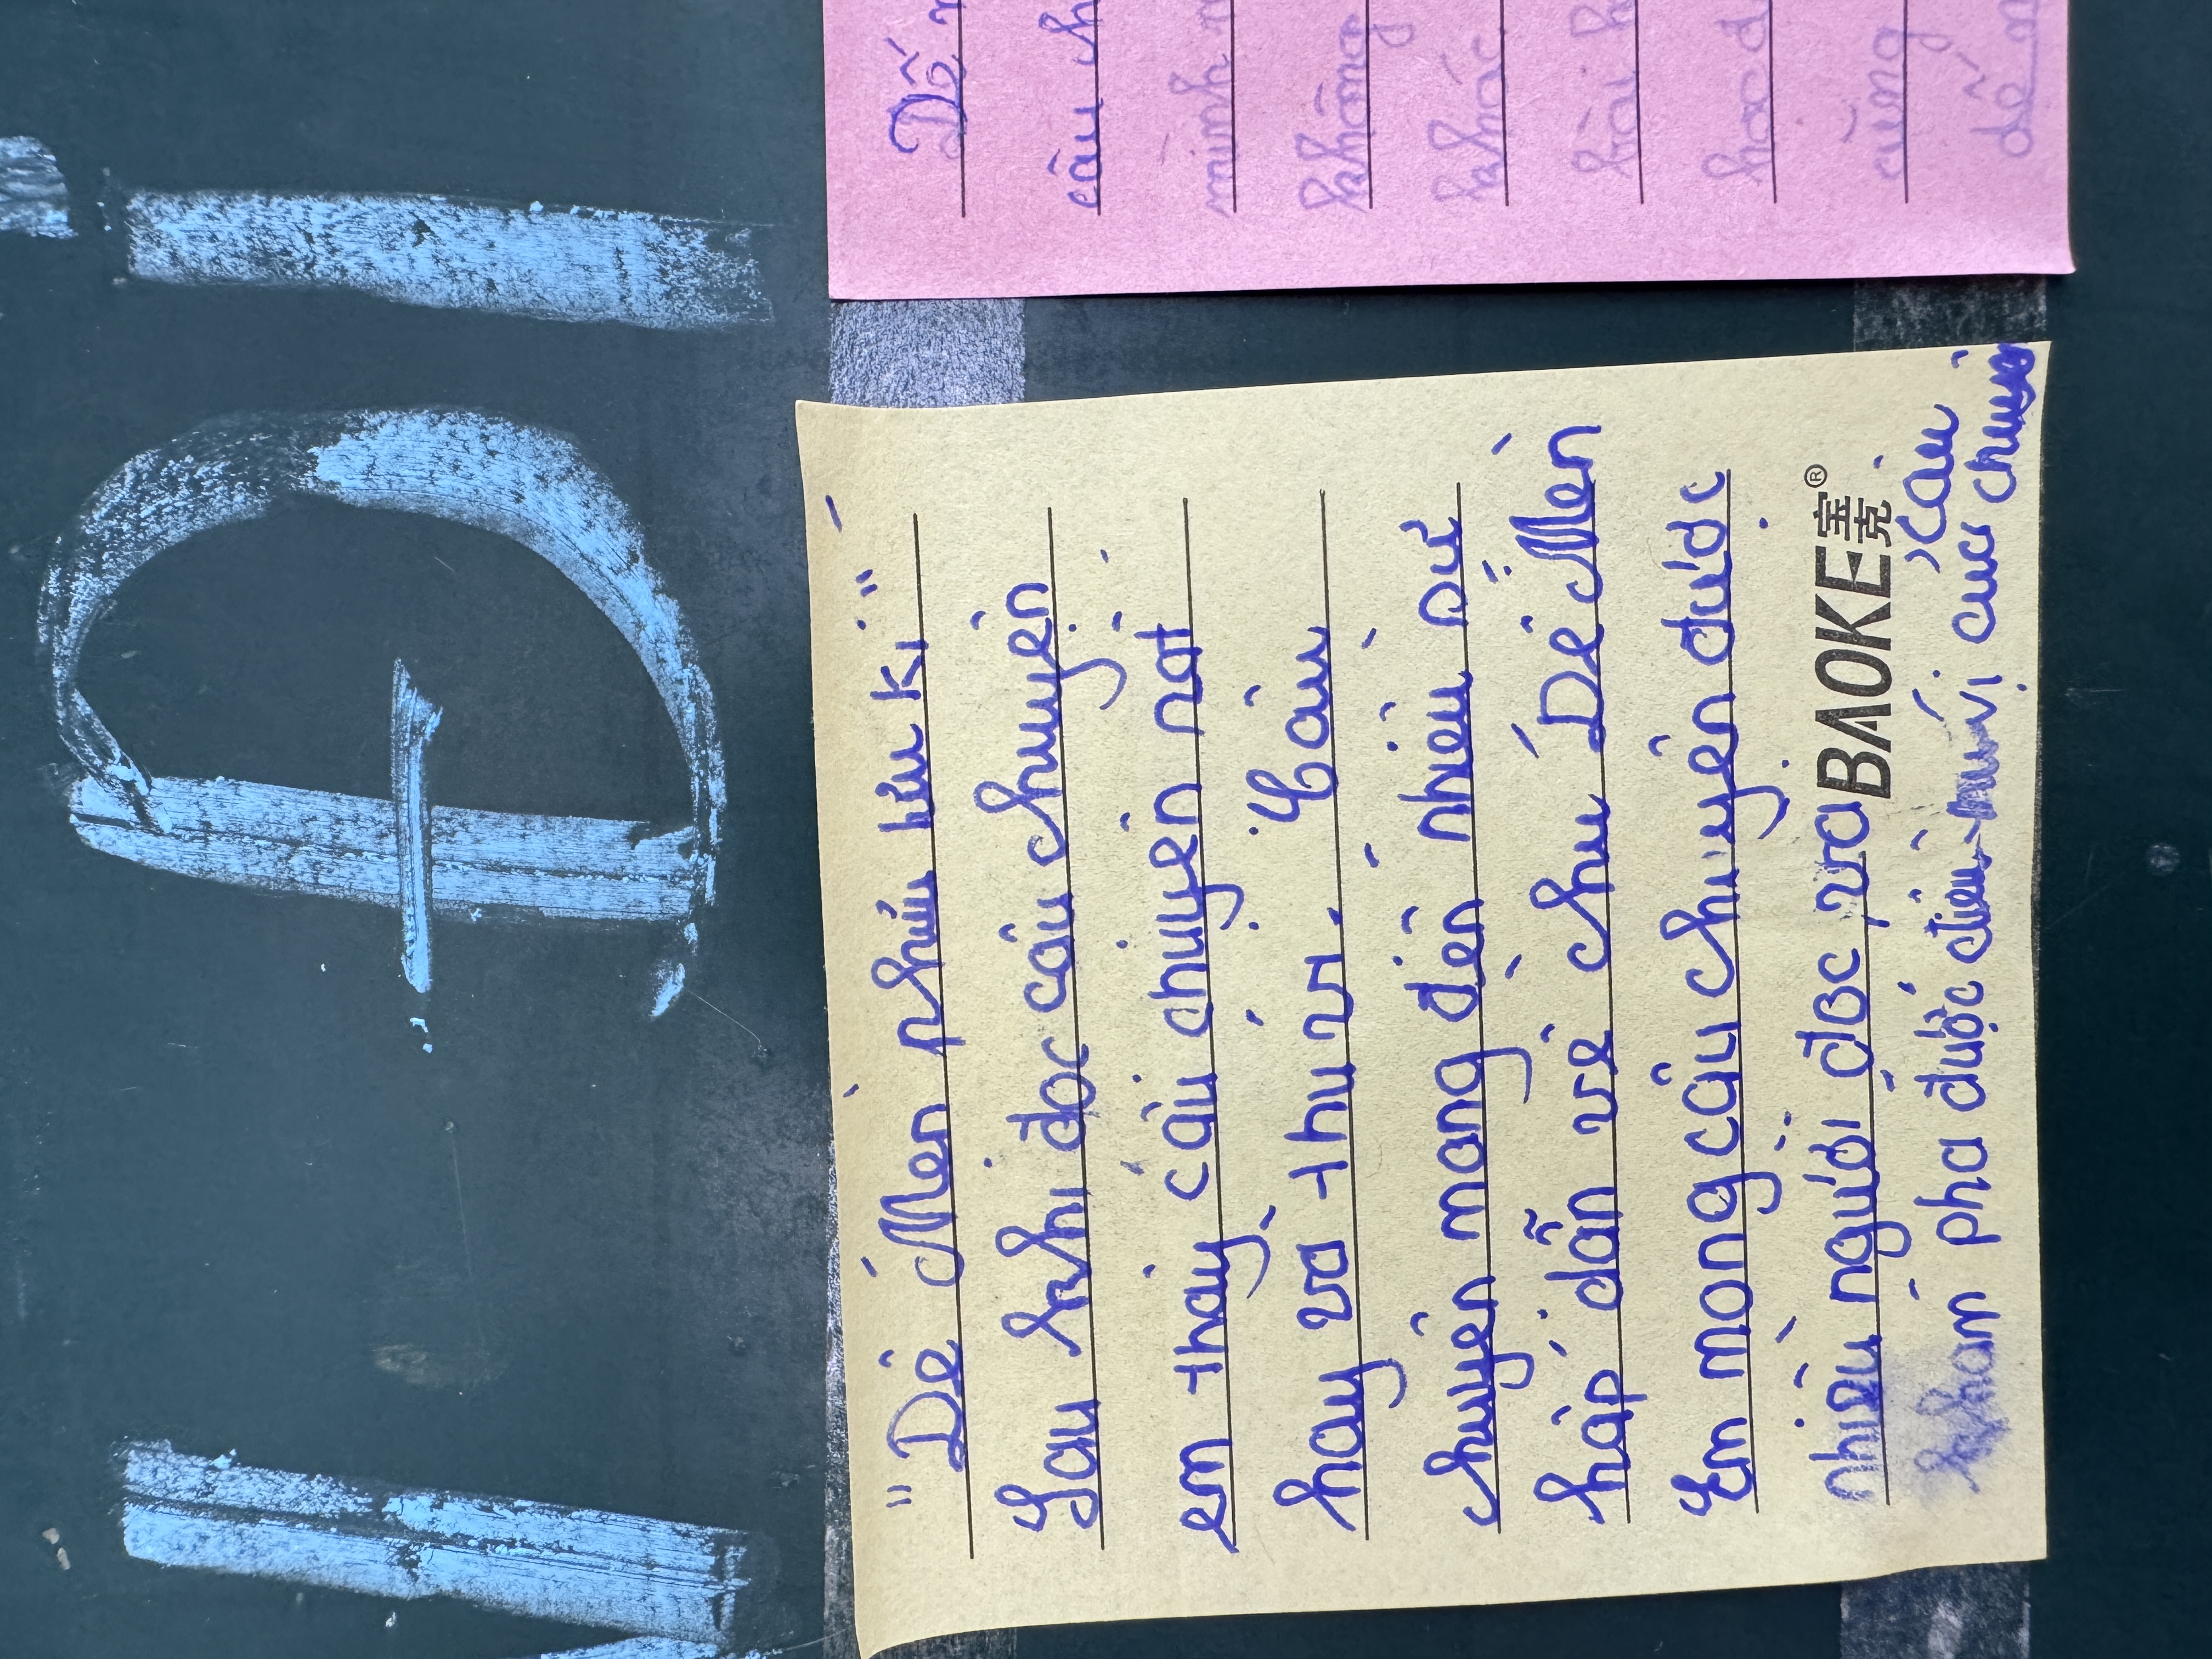 Đ
"Dế Mèn phiêu lưu kí"
Sau khi đọc câu chuyện
em thấy câu chuyện rất
hay và thú vị. Câu
chuyện mang đến nhiều sự
hấp dẫn về chú Dế Mèn
Em mong câu chuyện được
nhiều người đọc và
BAOKE宝克®
khám phá được điều thú vị của câu
chuyện
Dế
câu ch
mình
không
khác
bài h
học
cũng